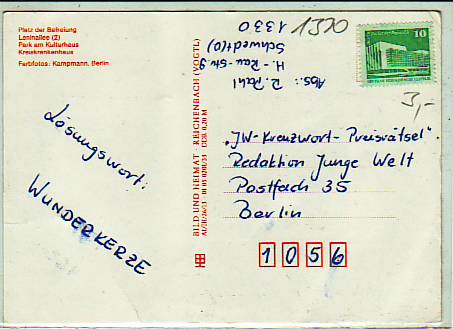 Platz der Befreiung
Leninallee (2)
Park am Kulturhaus
Kreiskrankenhaus
Farbfotos: Kampmann, Berlin
Lösungswort:
WUNDERKERZE
BILD UND HEIMAT · REICHENBACH (VOGTL)
DDR 0,20 M
Abs.: R. Pahl
H.-Rau-Str. 9
Schwedt(O)
1330
1330
10
3,-
„JW-Kreuzwort-Preisrätsel"
Redaktion Junge Welt
Postfach 35
Berlin
1056